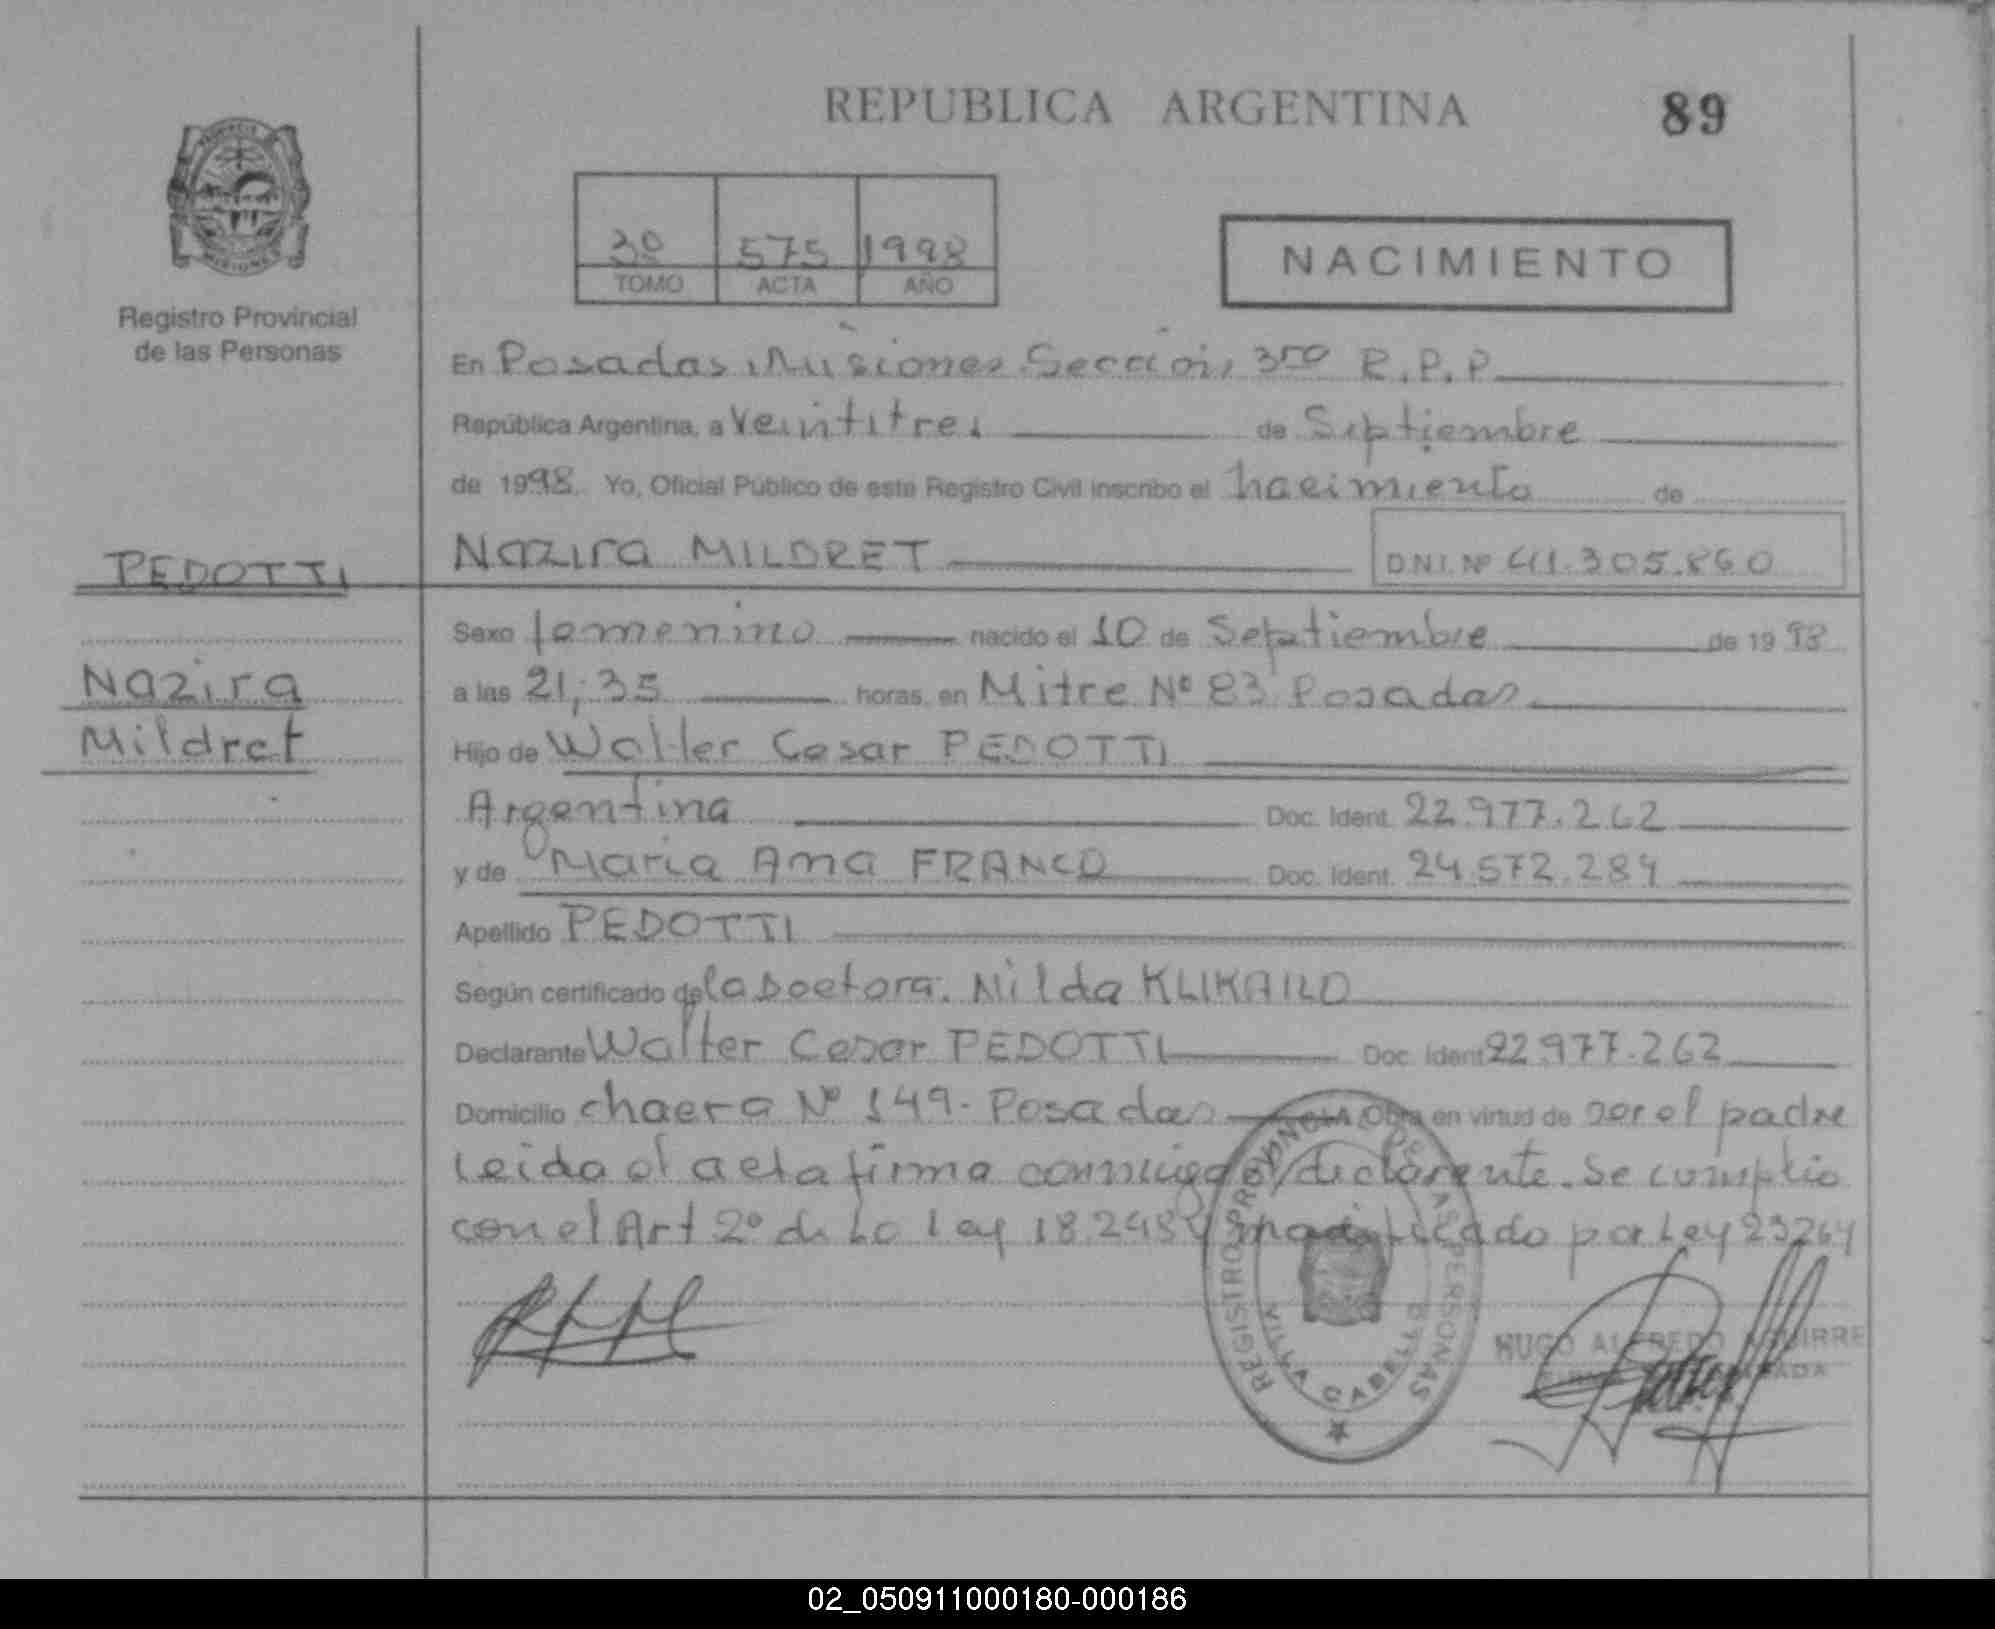 REPUBLICA ARGENTINA
89
3º 575 1998
TOMO ACTA AÑO
NACIMIENTO
Registro Provincial
de las Personas
En Posadas, Misiones Sección 3ra R.P.P.
República Argentina, a Veintitres de Septiembre
de 1998. Yo, Oficial Público de este Registro Civil inscribo el nacimiento de
PEDOTTI
Nazira MILDRET D.N.I. Nº 41.305.860
Sexo femenino nacido el 10 de Septiembre de 1998
Nazira
a las 21,35 horas, en Mitre Nº 83 Posadas
Mildret
Hijo de Walter Cesar PEDOTTI
Argentina Doc. Ident. 22.977.262
y de Maria Ana FRANCO Doc. Ident. 24.572.284
Apellido PEDOTTI
Según certificado de la Doctora. Nilda
Declarante Walter Cesar PEDOTTI Doc. Ident. 22.977.262
Domicilio chacra Nº 149. Posadas Obra en virtud de ser el padre
Leida el acta firma conmigo el declarante. Se cumplio
con el Art 2º de La Ley 18.248 modificado por Ley 23264
REGISTRO PROVINCIAL DE LAS PERSONAS
VILLA CABELLO
HUGO ALFREDO AGUIRRE
02_050911000180-000186